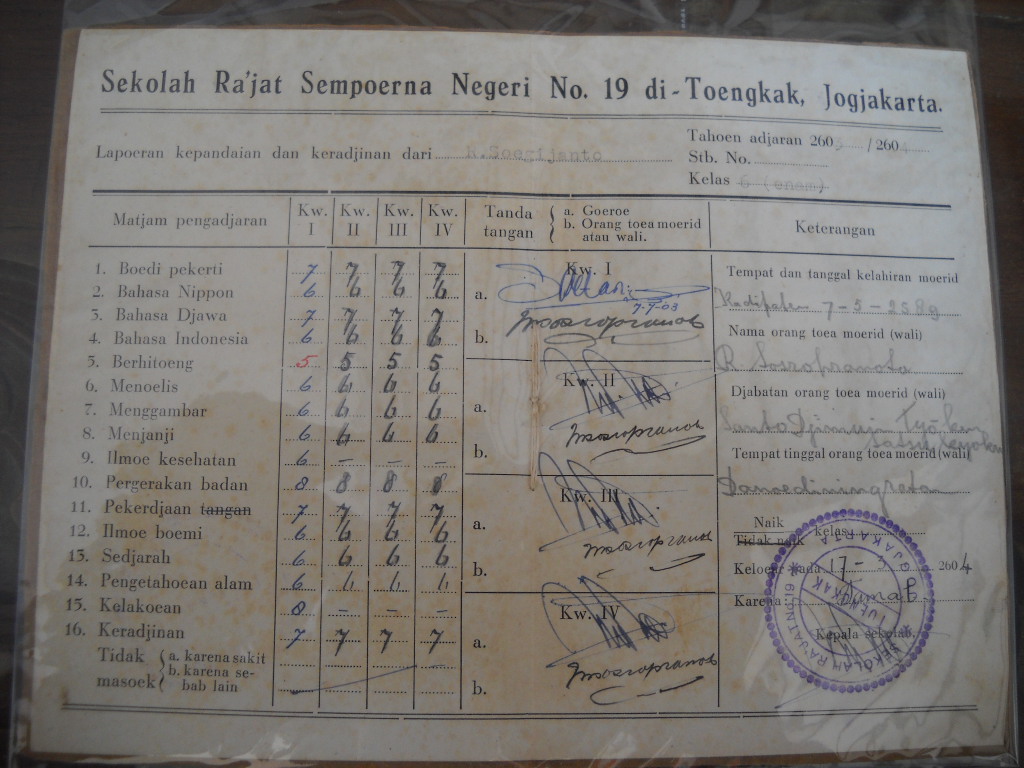 Sekolah Ra'jat Sempoerna Negeri No. 19 di-Toengkak, Jogjakarta.
Lapoeran kepandaian dan keradjinan dari R.Soegijanto
Tahoen adjaran 2603 / 2604
Stb. No.
Kelas 6 (enam)
Matjam pengadjaran Kw. I Kw. II Kw. III Kw. IV Tanda tangan a. Goeroe b. Orang toea moerid atau wali. Keterangan
1. Boedi pekerti 7 7 7 7
2. Bahasa Nippon 6 6 6 6
3. Bahasa Djawa 7 7 7 7
4. Bahasa Indonesia 6 6 6 6
5. Berhitoeng 5 5 5 5
6. Menoelis 6 6 6 6
7. Menggambar 6 6 6 6
8. Menjanji 6 6 6 6
9. Ilmoe kesehatan 6 – – –
10. Pergerakan badan 8 8 8 8
11. Pekerdjaan tangan 7 7 7 7
12. Ilmoe boemi 6 6 6 6
13. Sedjarah 6 6 6 6
14. Pengetahoean alam 6 6 6 6
15. Kelakoean 8 – – –
16. Keradjinan 7 7 7 7
Tidak masoek a. karena sakit
b. karena sebab lain
Kw. I
a.
7-7-03
b. Sosropranoto
Kw. II
a.
b. Sosropranoto
Kw. III
a.
b. Sosropranoto
Kw. IV
a.
b. Sosropranoto
Tempat dan tanggal kelahiran moerid
7-5-2589
Nama orang toea moerid (wali)
R Sosropranoto
Djabatan orang toea moerid (wali)
Tempat tinggal orang toea moerid (wali)
Danoediningratan
Naik
Tidak naik kelas
Keloear pada 17-3 2604
Karena: Tamat
Kepala sekolah.
SEKOLAH RA'JAT No. 19 TOENGKAK JOGJAKARTA